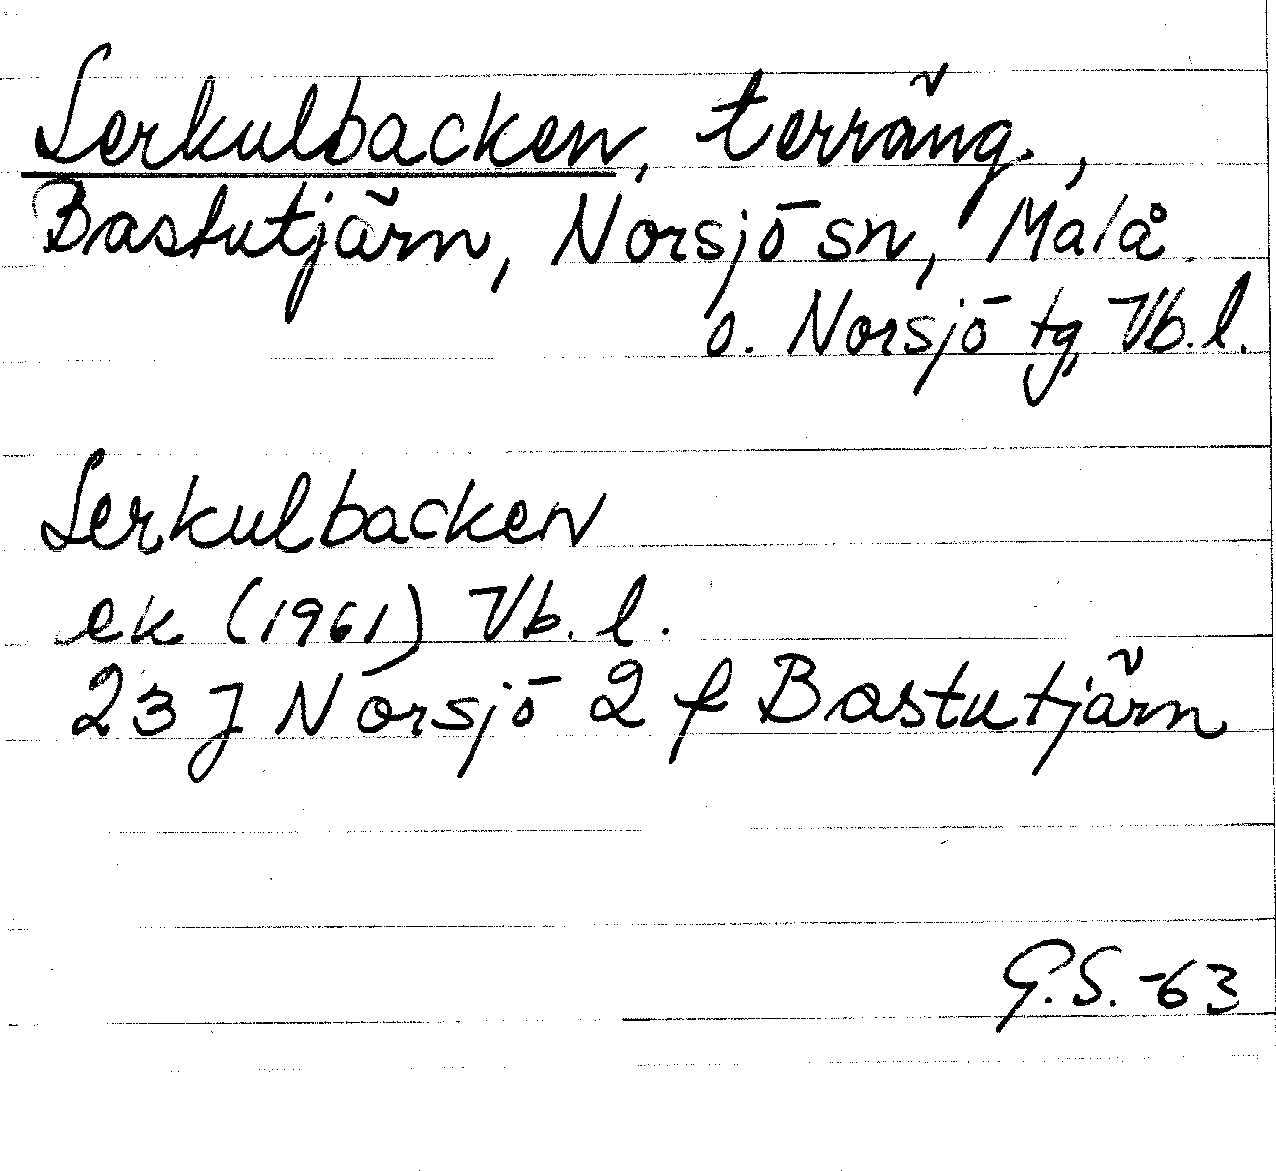 Lerkulbacken, terräng.,
Bastutjärn, Norsjö sn, Malå
o. Norsjö tg Vb.l.
Lerkulbacken
ek (1961) Vb. l.
23 J Norsjö 2 f Bastutjärn
G.S. -63